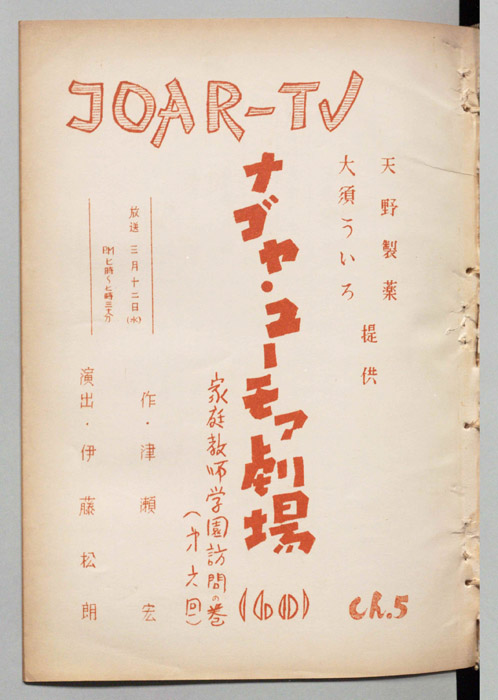 JOAR-TV
天野製薬
大須ういろ
提供
ナゴヤ・ユーモア劇場
家庭教師学園訪問の巻
(才六回)
ch.5
放送 三月十二日(水)
PM七時〜七時三十分
作・津瀬 宏
演出・伊藤松朗